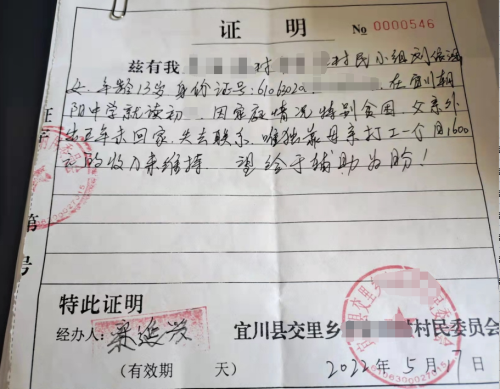 证 明
No 0000546
兹有我 村 村民小组刘
女,年龄13岁身份证号:6106302 在宜川朝
阳中学就读初 ,因家庭情况特别贫困,父亲外
出五年未回家,失去联系,唯独靠母亲打工一个月1600
元的收入来维持 望给于辅助为盼!
证字第 号
特此证明
经办人:
宜川县交里乡 村民委员会
(有效期 天)
2022年5月7日